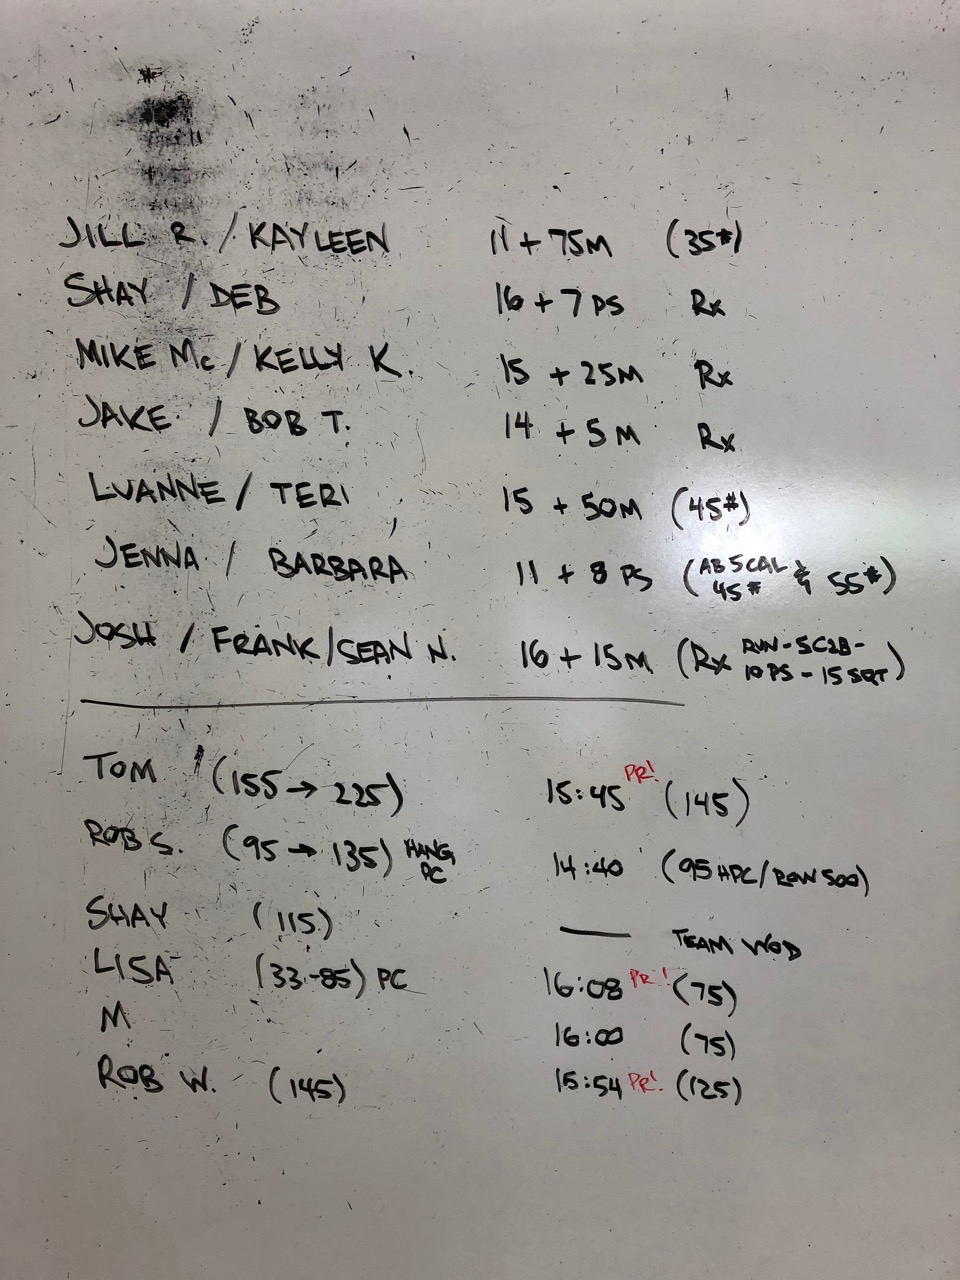 JILL R. / KAYLEEN 11 + 75M (35#)
SHAY / DEB 16 + 7 PS Rx
MIKE Mc / KELLY K. 15 + 25M Rx
JAKE / BOB T. 14 + 5M Rx
LUANNE / TERI 15 + 50M (45#)
JENNA / BARBARA 11 + 8 PS (AB SCAL 45# & 55#)
JOSH / FRANK / SEAN N. 16 + 15M (Rx RUN - 5C2B - 10 PS - 15 SQT)
TOM (155 → 225) 15:45 PR! (145)
ROB S. (95 → 135) HANG PC 14:40 (95 HPC / ROW 500)
SHAY (115) — TEAM WOD
LISA (33-85) PC 16:08 PR! (75)
M 16:00 (75)
ROB W. (145) 15:54 PR! (125)